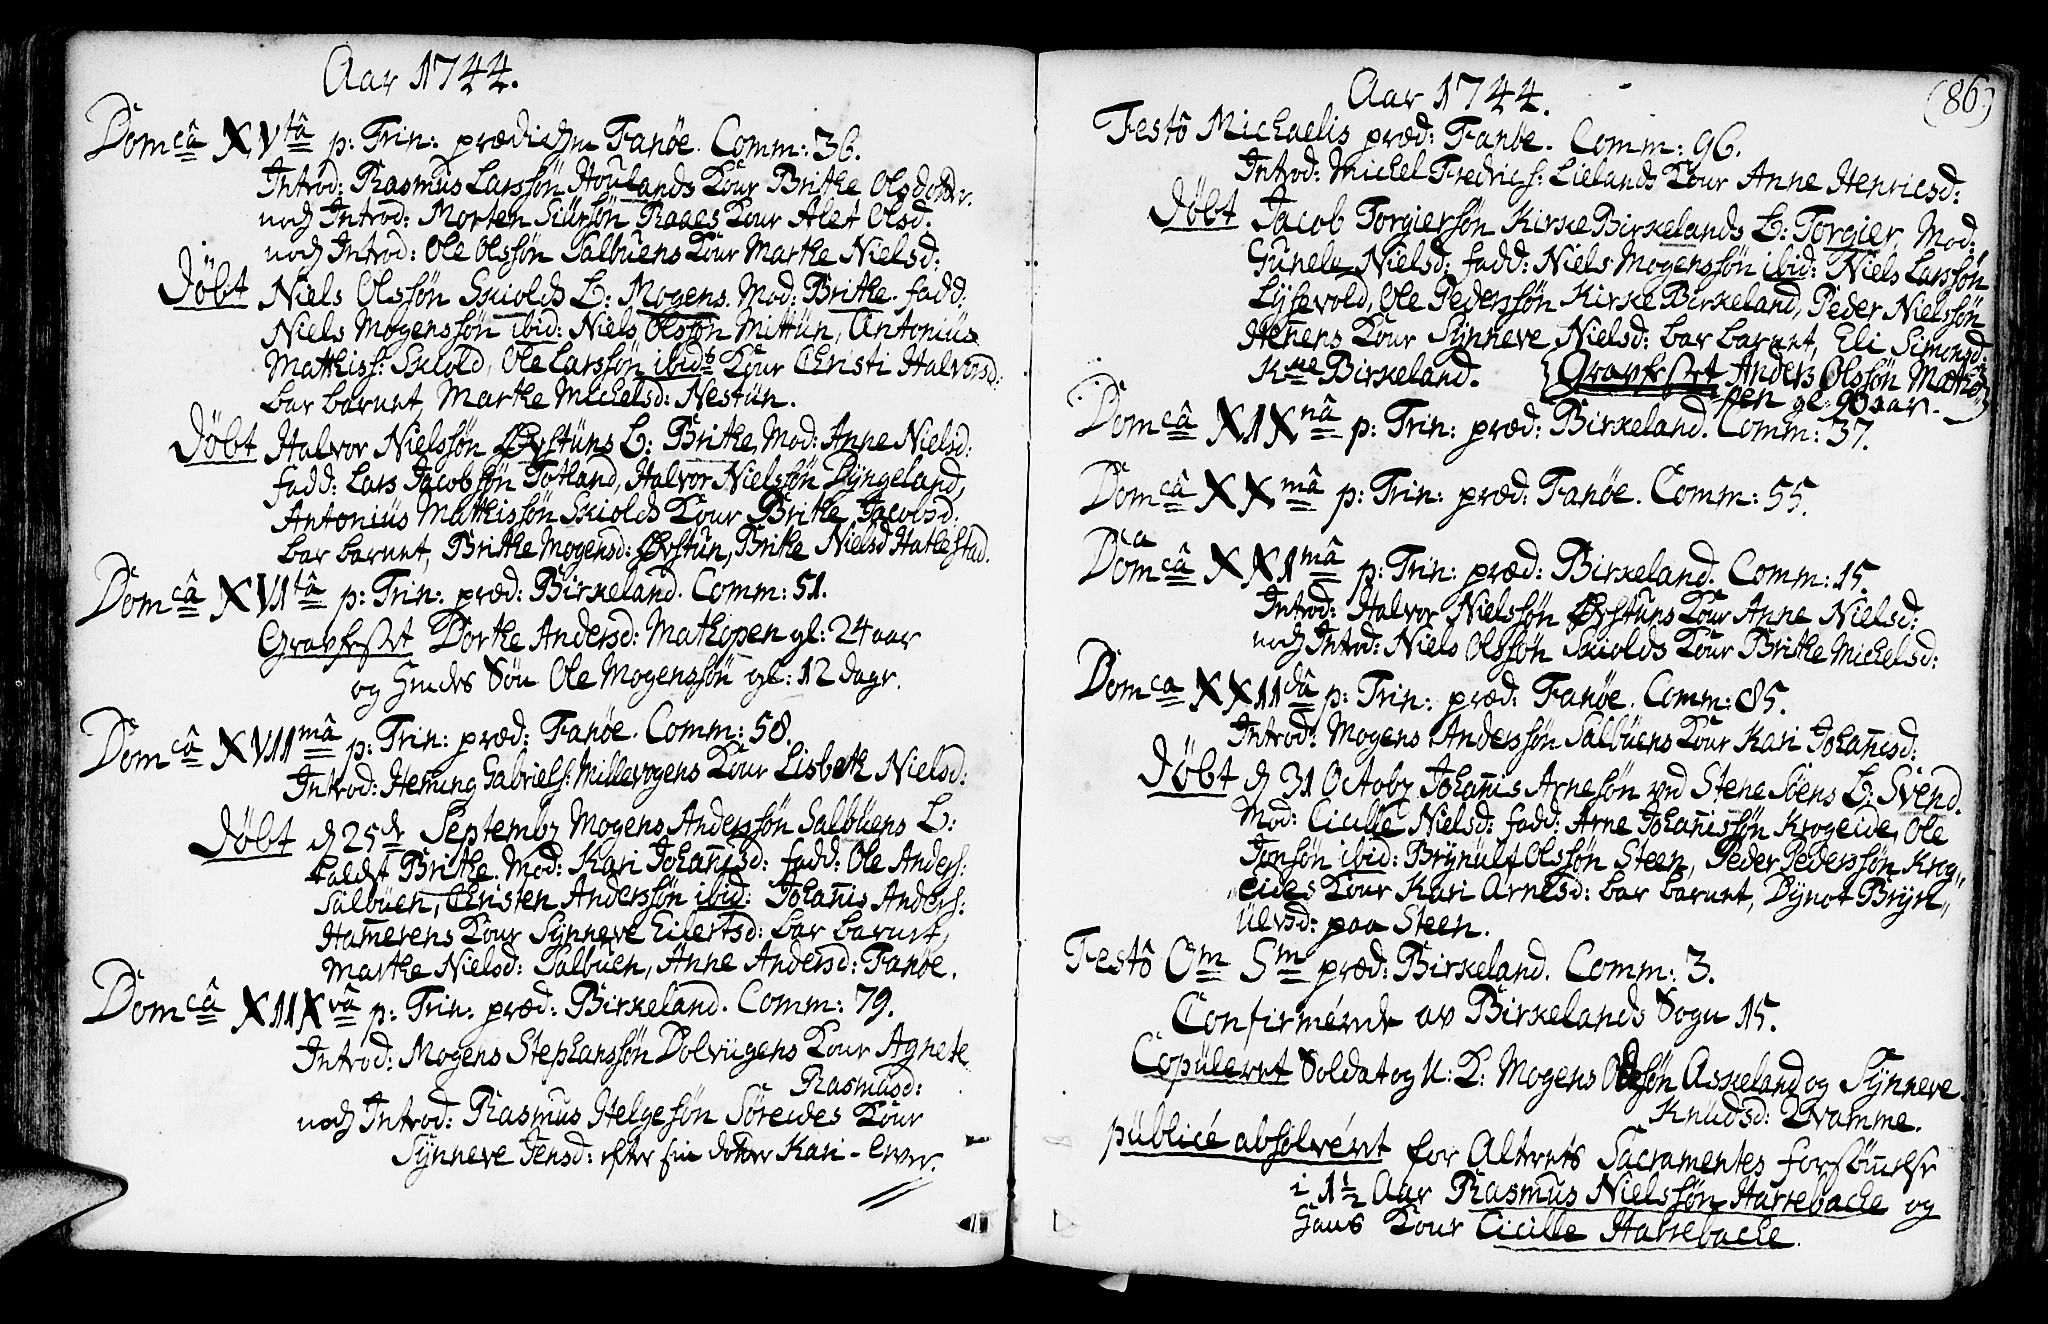 Aar 1744.
Dom câ XVtâ p: Trin: prædichen Fanöe. Comm: 36.
Introd: Rasmus Larssön Houlands Kour Brithe Olsdotter.
noch Introd: Morten Siursön Raaes Kour Alet Olsd:
noch Introd: Ole Olssön Salbuens Kour Marthe Nielsd:
Döbt Niels Olssön Skiolds B: Mogens. Mod: Brithe. fadd:
Niels Mogenssön ibid: Niels Olssön Mittün, Antonius
Matthiss: Skiold, Ole Larssön ibid: Kour Christi Halvorsd:
bar barnet, Marthe Michelsd: Nestün.
Döbt Halvor Nielssön Øvstüns B: Brithe, Mod: Anne Nielsd:
fadd: Lars Jacobsön Totland, Halvor Nielssön Dyngeland,
Antonius Matthissön Skiolds Kour Brithe Jacobsd:
bar barnet, Brithe Mogensd: Øvstun, Brithe Nielsd Hatlestad.
Dom câ XVItâ p: Trin: præd: Birkeland. Comm: 51.
Gravfestet Dorthe Andersd: Mathopen gl: 24 aar
og hendes Sön Ole Mogenssön gl: 12 dage.
Dom câ XVIImâ p: Trin: præd: Fanöe. Comm: 58.
Introd: Heming Gabriels: Millevogens Kour Lisbeth Nielsd:
Döbt d 25de Septembr Mogens Anderssön Salbüens B:
kaldet Brithe. Mod: Kari Johannisd: fadd: Ole Anders:
Salbüen, Christen Anderssön ibid: Johanis Anders:
Hamerens Kour Synneve Eilertsd: bar barnet,
Marthe Nielsd: Salbuen, Anne Andersd: Fanöe.
Dom câ XIIXvâ p: Trin: præd: Birkeland. Comm: 79.
Introd: Mogens Stephanssön Dolvügens Kour Agnete
Rasmusd:
noch Introd: Rasmus Helgesön Söreides Kour
Synneve Jensd: efter sin dotter Kari
Aar 1744.
(86)
Festô Michaelis præd: Fanöe. Comm: 96.
Introd: Michel Fredrics: Lielands Kour Anne Henricsd:
Döbt Jacob Torgiersön KirkeBirkelands B: Torgier, Mod:
Gunele Nielsd: fadd: Niels Mogenssön ibid: Niels Larssön
Lysevold, Ole Pederssön Kirke Birkeland, Peder Nielssön
Henens Kour Synneve Nielsd: bar barnet, Eli Simonsd:
Kke Birkeland. Gravfestet Anders Olssön Matho,,
pen gl: 90 aar.
Dom câ XIXnâ p: Trin: præd: Birkeland. Comm: 37.
Dom câ XXmâ p: Trin: præd: Fanöe. Comm: 55.
Dom câ XXImâ p: Trin: præd: Birkeland. Comm: 15.
Introd: Halvor Nielssön Øvstüns Kour Anne Nielsd:
noch Introd: Niels Olssön Skiolds Kour Brithe Michelsd:
Dom ca XXIIdâ p: Trin: præd: Fanöe. Comm: 85.
Introd: Mogens Anderssön Salbüens Kour Kari Johanisd:
Döbt d 31 Octobr Johannis Arnesön ved Stene Söens B: Svend.
Mod: Cicille Nielsd: fadd: Arne Johanissön Krogeide, Ole
Jonsön ibid: Brynulf Olssön Steen, Peder Pederssön Krog,,
eides Kour Kari Arnesd: bar barnet, Dynot Bryn,,
ulvsd: paa Steen.
Festô Om Sm præd: Birkeland. Comm: 3.
Confirmérede av Birkelands Sogn 15.
Copuleret Soldat og U: K: Mogens Olssön Askeland og Synneve
Knudsd: Qvamme.
publicé absolvéret for Alterets Sacramentes forsömmelse
i 1 1/2 Aar Rasmus Nielssön Harrebacke og
hans Kour Cicille Harrebacke.